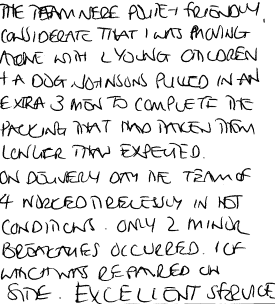 THE TEAM WERE POLITE + FRIENDLY,
CONSIDERATE THAT I WAS MOVING
ALONE WITH 2 YOUNG CHILDREN
+ A DOG. JOHNSONS PULLED IN AN
EXTRA 3 MEN TO COMPLETE THE
PACKING THAT HAD TAKEN THEM
LONGER THAN EXPECTED.
ON DELIVERY DAY THE TEAM OF
4 WORKED TIRELESSLY IN HOT
CONDITIONS. ONLY 2 MINOR
BREAKAGES OCCURRED. 1 OF
WHICH WAS REPAIRED ON
SITE. EXCELLENT SERVICE